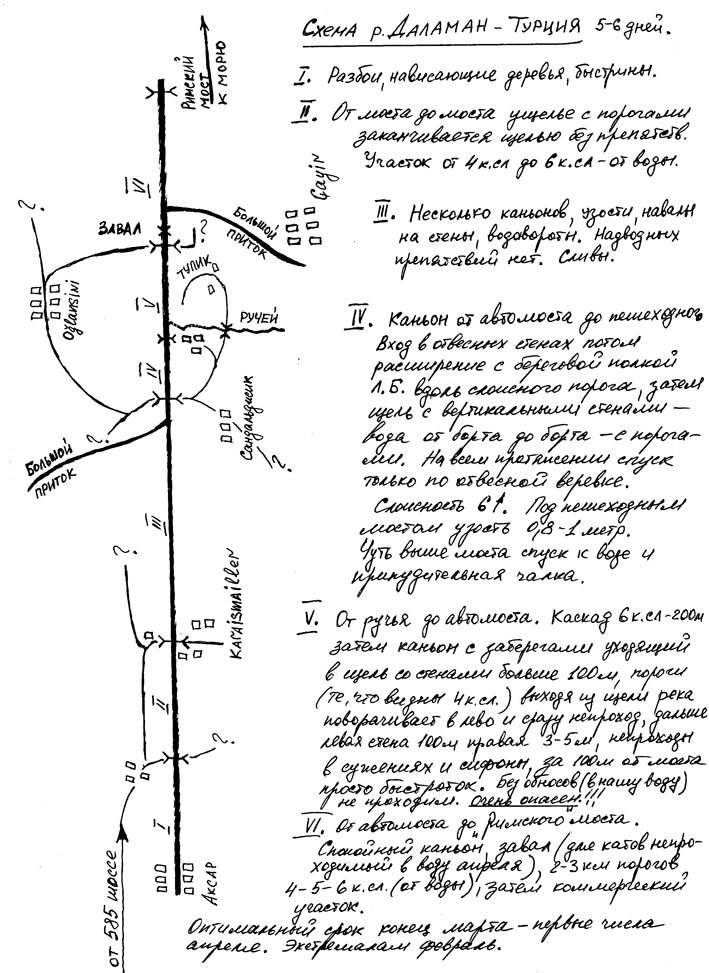 Схема р. Даламан – Турция 5-6 дней.
I. Разбои, нависающие деревья, быстрины.
II. От моста до моста ущелье с порогами
заканчивается щелью без препятств.
Участок от 4 к.сл до 6 к.сл – от воды.
III. Несколько каньонов, узости, навалы
на стены, водовороты. Надводных
препятствий нет. Сливы.
IV. Каньон от автомоста до пешеходного
Вход в отвесных стенах потом
расширение с береговой полкой
Л.Б. вдоль слоисного порога, затем
щель с вертикальными стенами –
вода от борта до борта – с порога-
ми. На всем протяжении спуск
только по отвесной веревке.
Слоисность 6↑. Под пешеходным
мостом узость 0,8-1 метр.
Чуть выше моста спуск к воде и
принудительная чалка.
V. От ручья до автомоста. Каскад 6 к.сл – 200м
затем каньон с заберегами уходящий
в щель со стенами больше 100м, пороги
(те, что видны 4 к.сл.) выходя из щели река
поворачивает в лево и сразу непроход, дальше
левая стена 100м правая 3-5м, непроходы
в сужениях и сифоны, за 100м от моста
просто быстроток. Без обносов (в нашу воду)
не проходим. Очень опасен!!!
VI. От автомоста до "Римского" моста.
Спокойный каньон, завал (для катов непро-
ходимый в воду апреля), 2-3 км порогов
4-5-6 к.сл. (от воды), затем коммерческий
участок.
Оптимальный срок конец марта – первые числа
апреля. Экстремалам февраль.
Римский
мост
к морю
VI
Çayir
?
ЗАВАЛ
?
Большой
приток
тупик
Oğlansini
V
РУЧЕЙ
IV
?
Сандалдисик
?
Большой
приток
III
?
Karaismailler
II
?
I
от 585 шоссе
Аксар